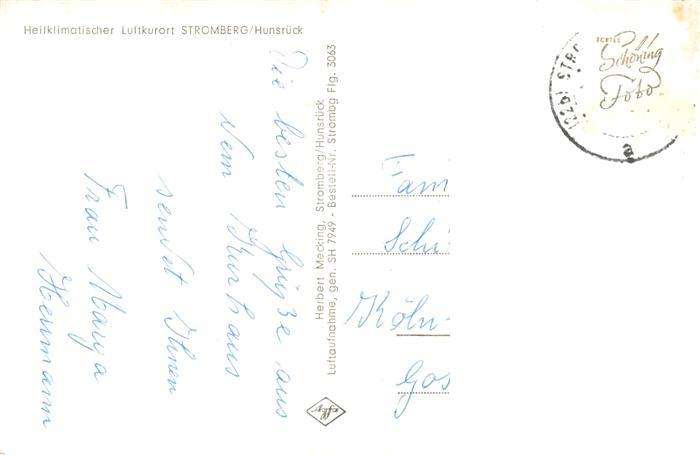 Heilklimatischer Luftkurort STROMBERG/Hunsrück
Die besten Grüße aus
dem Kurhaus
sendet Ihnen
Frau Marga
Hermann
Herbert Mecking, Stromberg/Hunsrück
Luftaufnahme, gen. SH 7949 - Bestell-Nr. Strombg Flg. 3063
Fam
Schi
Köln-
Gos
ECHTES
Schöning
Foto
(22b) STRO
a